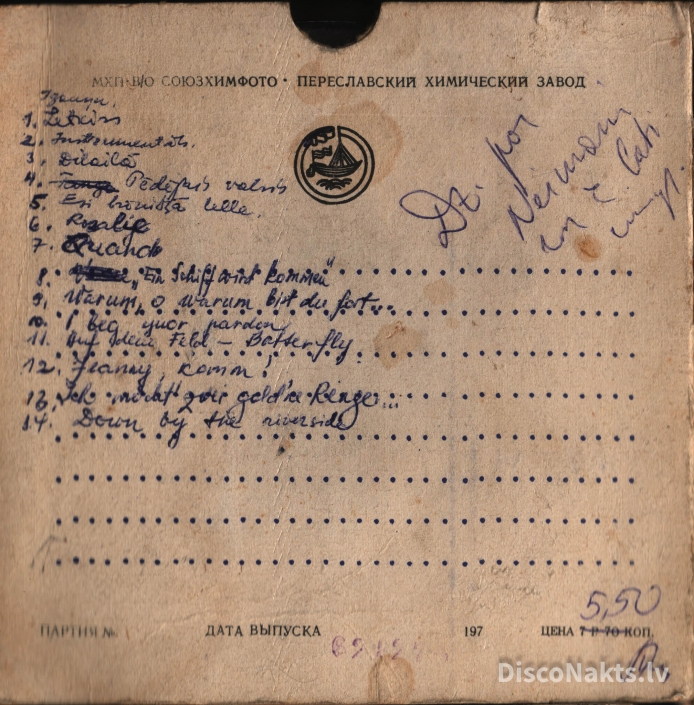 МХП·В/О СОЮЗХИМФОТО · ПЕРЕСЛАВСКИЙ ХИМИЧЕСКИЙ ЗАВОД
1. Letkiss
2. Instrumentāls.
3. Dilailā
4. Tango Pēdējais valsis
5. Esi lelle.
6. Rozalie
7. Quando
8. "Ein Schiff wird kommen"
9. Warum, o warum bist du fort...
10. I beg your pardon
11. Auf dem Feld - Butterfly
12. Jeanny, komm!
13. Ich möcht' zwei gold'ne Ringe...
14. Down by the riverside
Dz. por
Neimani
un č
ПАРТИЯ № ДАТА ВЫПУСКА 197 ЦЕНА 7 Р 70 КОП.
5,50
DiscoNakts.lv